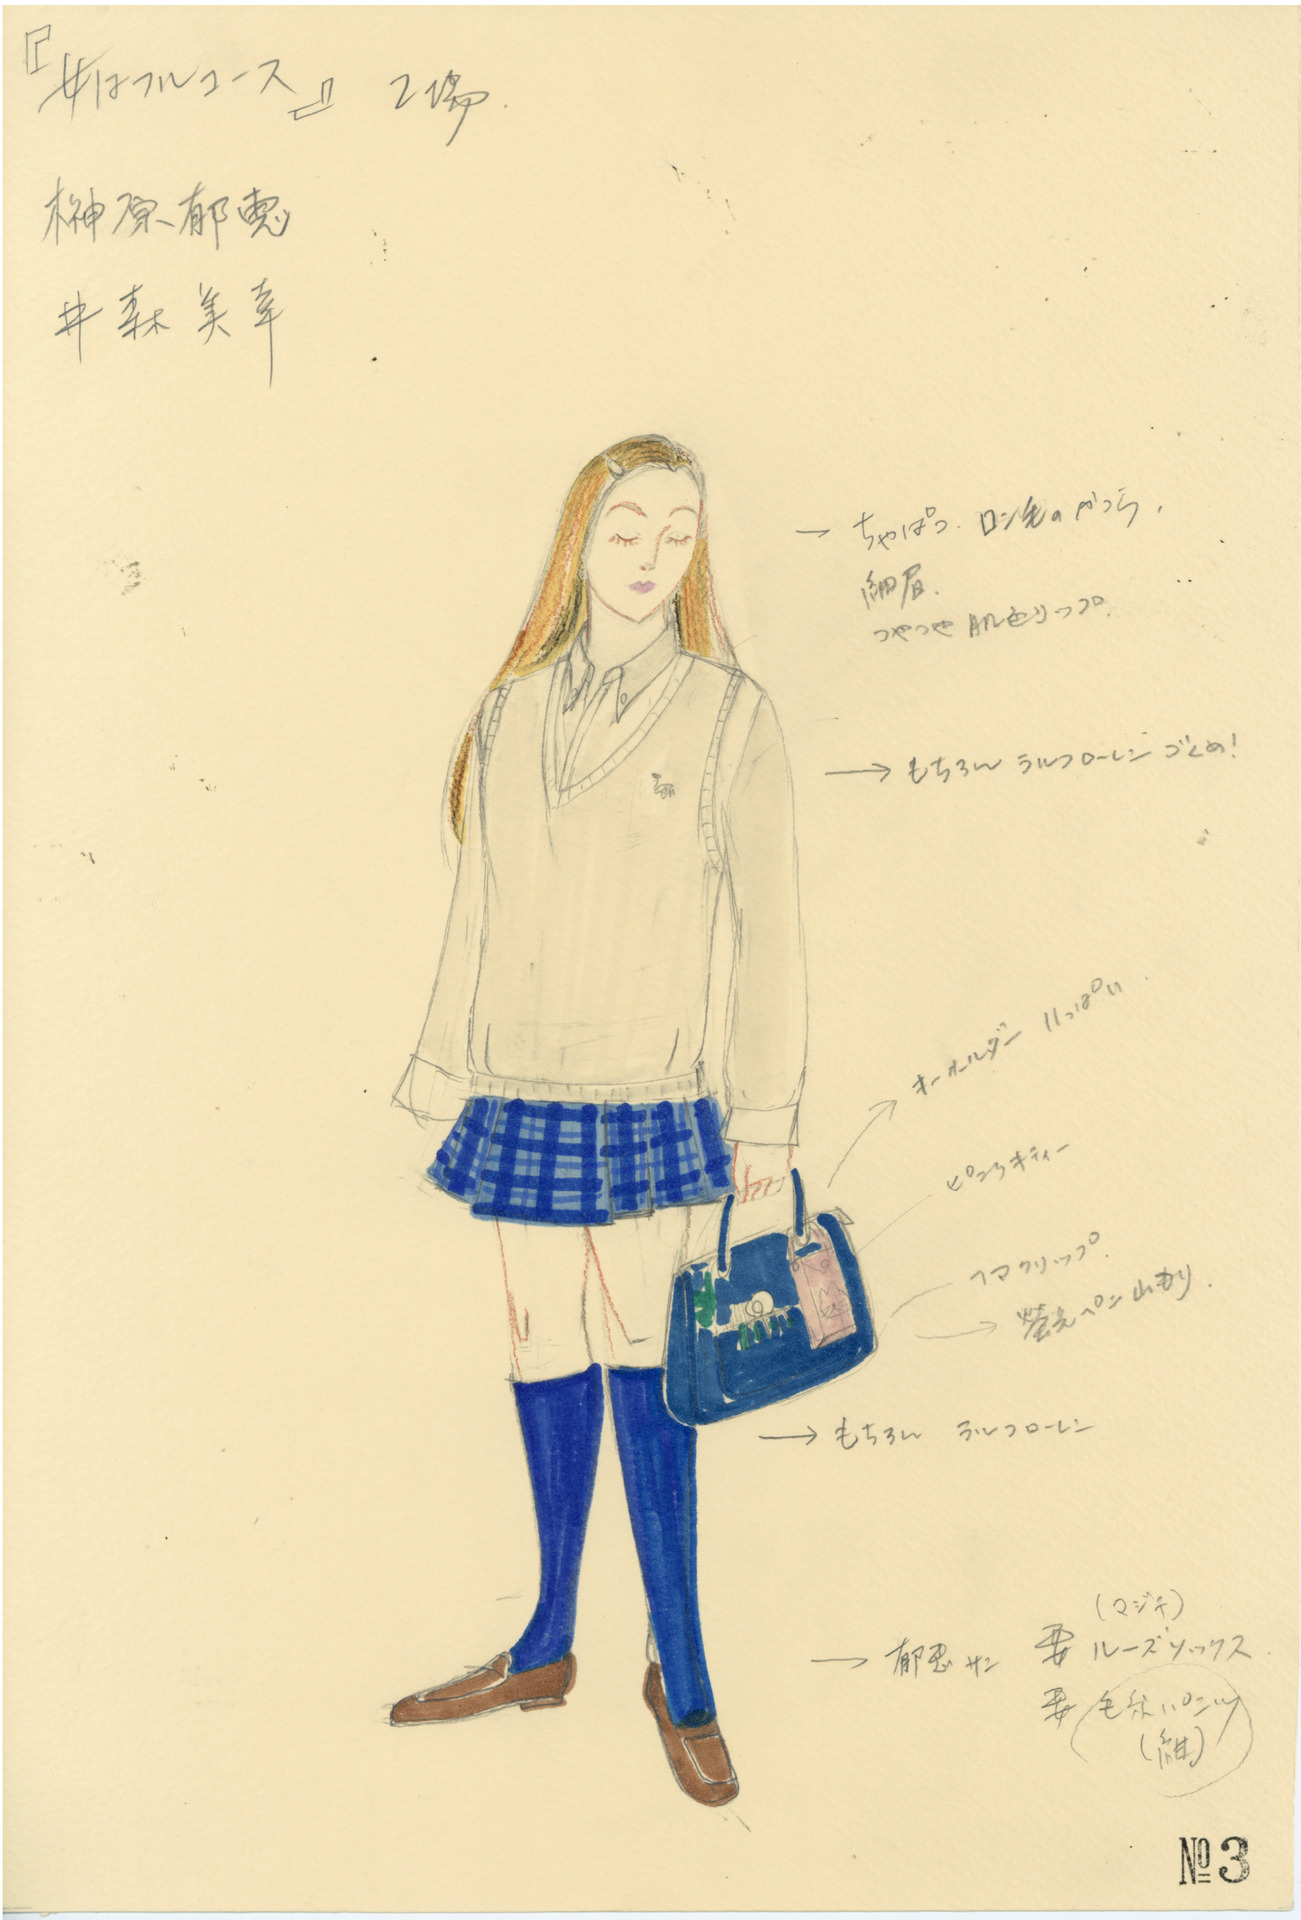 『女はフルコース』 2場.
榊原郁恵
井森美幸
→ ちゃぱつ. ロン毛のかつら.
細眉.
つやつや 肌色リップ.
→ もちろん ラルフローレン
キーホルダー いっぱい.
ピンクキティー
クリップ.
蛍光ペン 山もり.
→ もちろん ラルフローレン
(マジチ)
→ 郁恵サン 要 ルーズソックス.
要 毛糸パンツ
(紺)
№3